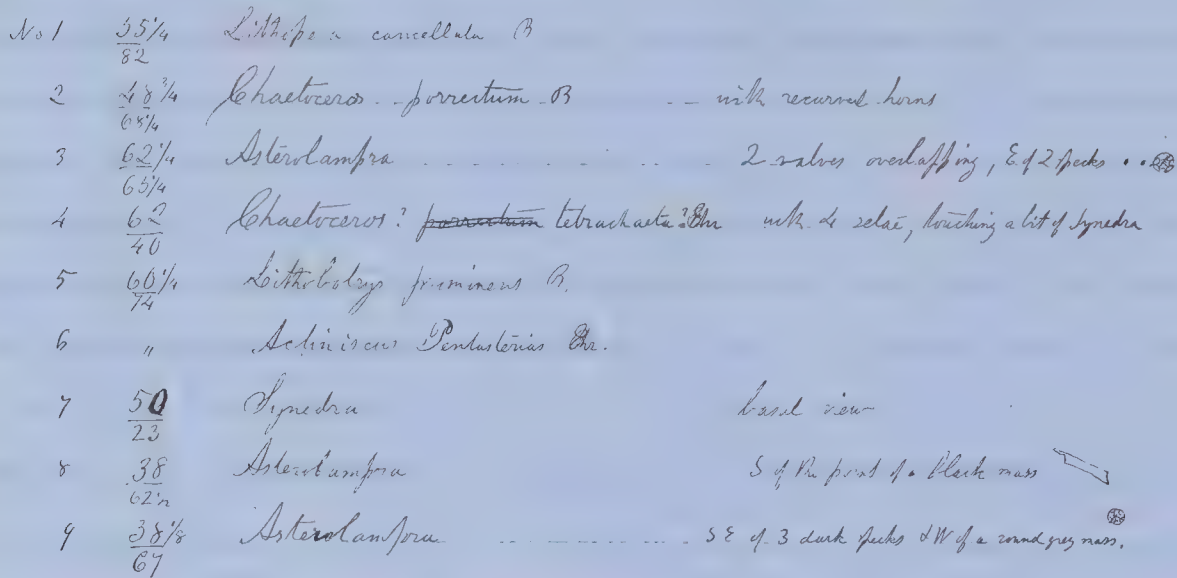 No 1 35 1/4 / 82 Lithopera cancellata B
2 48 3/4 / 68 1/4 Chaetoceros . . porrectum B . . . with recurved horns
3 62 1/4 / 65 1/4 Asterolampra . . . . . . . . 2 valves overlapping, E of 2 specks • •
4 62 / 40 Chaetoceros? porrectum tetrachaeta? Ehr with 4 setae, touching a bit of Synedra
5 60 1/4 / 74 Lithobotrys B.
6 " Actiniscus Pentasterias Ehr.
7 50 / 23 Synedra basal view
8 38 / 62 1/2 Asterolampra S of the point of a black mass
9 38 1/8 / 67 Asterolampra . . . . . . . . S E of 3 dark specks & W of a round grey mass.